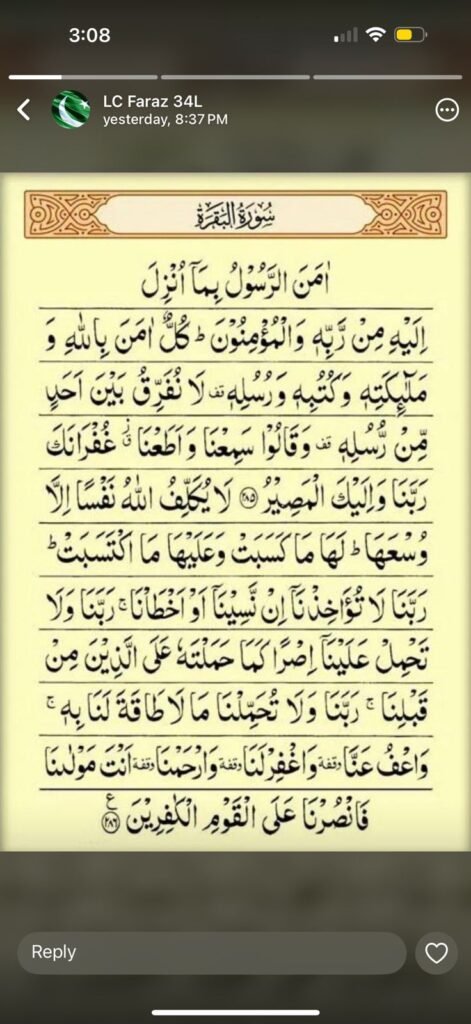 3:08
LC Faraz 34L
yesterday, 8:37 PM
سُوْرَةُ الْبَقَرَةِ
اٰمَنَ الرَّسُوْلُ بِمَاۤ اُنْزِلَ
اِلَيْهِ مِنْ رَّبِّهٖ وَالْمُؤْمِنُوْنَ ؕ كُلٌّ اٰمَنَ بِاللّٰهِ وَ
مَلٰٓئِكَتِهٖ وَكُتُبِهٖ وَرُسُلِهٖ قف لَا نُفَرِّقُ بَيْنَ اَحَدٍ
مِّنْ رُّسُلِهٖ قف وَقَالُوْا سَمِعْنَا وَاَطَعْنَا ؗ غُفْرَانَكَ
رَبَّنَا وَاِلَيْكَ الْمَصِيْرُ ﴿۲۸۵﴾ لَا يُكَلِّفُ اللّٰهُ نَفْسًا اِلَّا
وُسْعَهَا ؕ لَهَا مَا كَسَبَتْ وَعَلَيْهَا مَا اكْتَسَبَتْ ؕ
رَبَّنَا لَا تُؤَاخِذْنَاۤ اِنْ نَّسِيْنَاۤ اَوْ اَخْطَاْنَا ۚ رَبَّنَا وَلَا
تَحْمِلْ عَلَيْنَاۤ اِصْرًا كَمَا حَمَلْتَهٗ عَلَى الَّذِيْنَ مِنْ
قَبْلِنَا ۚ رَبَّنَا وَلَا تُحَمِّلْنَا مَا لَا طَاقَةَ لَنَا بِهٖ ۚ
وَاعْفُ عَنَّا وقفة وَاغْفِرْ لَنَا وقفة وَارْحَمْنَا وقفة اَنْتَ مَوْلٰىنَا
فَانْصُرْنَا عَلَى الْقَوْمِ الْكٰفِرِيْنَ ﴿۲۸۶﴾ ع
Reply